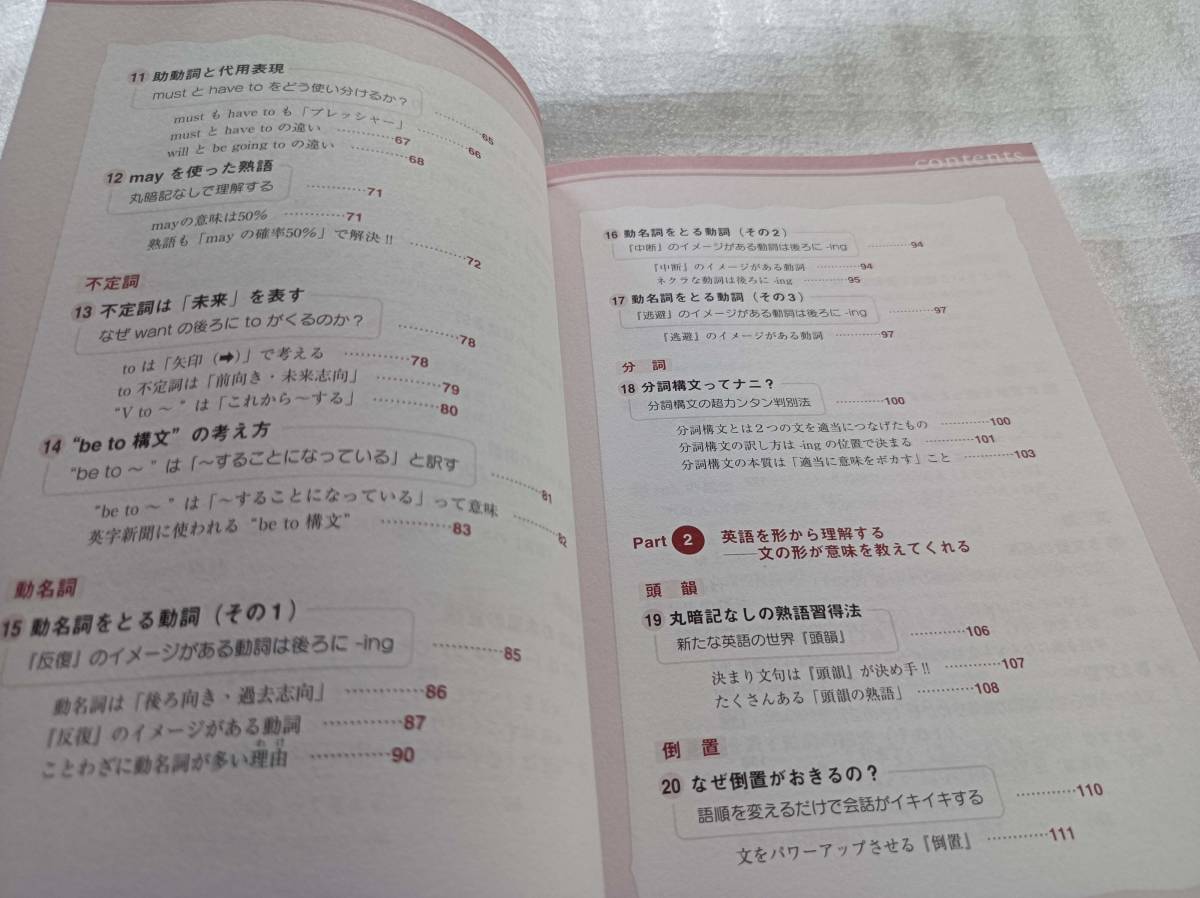 11 助動詞と代用表現
must と have to をどう使い分けるか? …………65
must も have to も「プレッシャー」 …………66
must と have to の違い …………67
will と be going to の違い …………68
12 may を使った熟語
丸暗記なしで理解する …………71
mayの意味は50% …………71
熟語も「may の確率50%」で解決!! …………72
不定詞
13 不定詞は「未来」を表す
なぜ want の後ろに to がくるのか? …………78
to は「矢印(➡)」で考える …………78
to 不定詞は「前向き・未来志向」 …………79
“V to ～ ” は「これから～する」 …………80
14 “be to 構文” の考え方
“be to ～ ” は「～することになっている」と訳す …………81
“be to ～ ” は「～することになっている」って意味 …………82
英字新聞に使われる “be to 構文” …………83
動名詞
15 動名詞をとる動詞(その1)
『反復』のイメージがある動詞は後ろに -ing …………85
動名詞は「後ろ向き・過去志向」 …………86
『反復』のイメージがある動詞 …………87
ことわざに動名詞が多い理由 …………90
contents
16 動名詞をとる動詞(その2)
『中断』のイメージがある動詞は後ろに -ing …………94
『中断』のイメージがある動詞 …………94
ネクラな動詞は後ろに -ing …………95
17 動名詞をとる動詞(その3)
『逃避』のイメージがある動詞は後ろに -ing …………97
『逃避』のイメージがある動詞 …………97
分 詞
18 分詞構文ってナニ?
分詞構文の超カンタン判別法 …………100
分詞構文とは2つの文を適当につなげたもの …………100
分詞構文の訳し方は -ing の位置で決まる …………101
分詞構文の本質は「適当に意味をボカす」こと …………103
Part 2 英語を形から理解する
――文の形が意味を教えてくれる
頭 韻
19 丸暗記なしの熟語習得法
新たな英語の世界『頭韻』 …………106
決まり文句は『頭韻』が決め手!! …………107
たくさんある「頭韻の熟語」 …………108
倒 置
20 なぜ倒置がおきるの?
語順を変えるだけで会話がイキイキする …………110
文をパワーアップさせる『倒置』 …………111